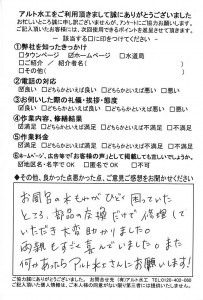 アルト水工をご利用頂きまして誠にありがとうございました
お忙しいところ大変申し訳ございませんが、アンケートにご協力お願いします。
ご記入頂いたお客様には、次回使用できるポイントを進呈させて頂きます。
― 該当する□に印をつけてください ―
①弊社を知ったきっかけ
□タウンページ ☑ホームページ □水道局
□ご紹介 / 紹介者名( )
□その他( )
②電話の対応
☑良い □どちらかといえば良い □どちらかといえば悪い □悪い
③お伺いした際の礼儀・挨拶・態度
☑良い □どちらかといえば良い □どちらかといえば悪い □悪い
④作業内容、修繕結果
☑満足 □どちらかといえば満足 □どちらかといえば不満足 □不満足
⑤作業料金
☑満足 □どちらかといえば満足 □どちらかといえば不満足 □不満足
⑥ホームページ、広告等で「お客様の声」として掲載しても宜しいでしょうか。
☑地区名・名字でOK □匿名でOK □不可
◆その他、良かった点悪かった点、ご意見ご感想をお聞かせください
お風呂の水もれがひどく困っていた
ところ、部品の交換だけで修理して
いただき大変助かりました。
両親もすごく喜んでいました。また
何かあったらアルト水工さんにお願いします!
ご協力誠にありがとうございました。